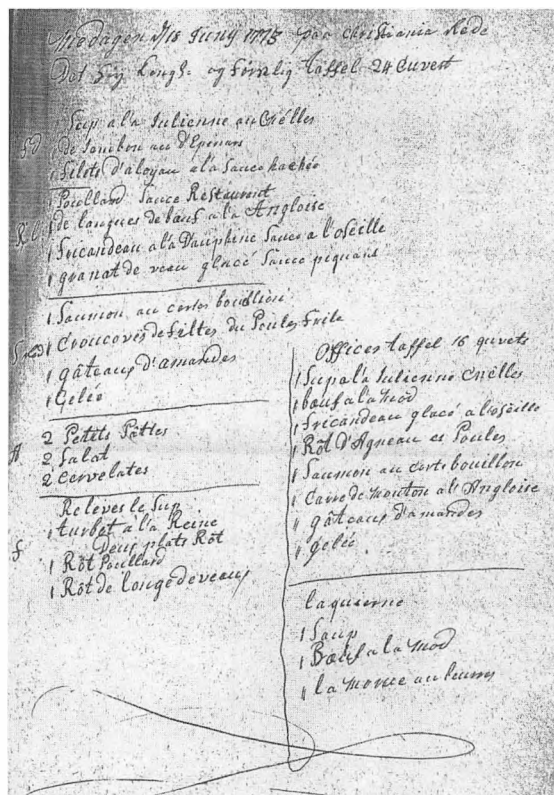 Middagen d/18 Juny 1773 paa Christiania Rede
Det Kongl. og Førstlig taffel 24 Cuvert
1 Sup a la Julienne au Crélles
1 de Jambon au d'Epenars
1 Filets d'aloyau a la Sauce hachée
1 Poullard Sauce Restaurant
1 de langues de bœuf a la Angloise
1 Fricandeau a la Dauphine Sauce a l'oseille
1 granat de veau glacé Sauce piquant
1 Saumon au cortes bouillion
1 Croucoves de filtes du Poules Frile
1 gâteaux d'amandes
1 Gelée
2 Petits Pâttes
2 Salat
2 Cervelates
Releves le Sup
1 turbot a la Reine
Deux plats Rôt
1 Rôt Poullard
1 Rôt de longe de veaux
Offices taffel 16 quverts
1 Sup a la Julienne Crélles
1 bœuf a la Mod
1 Fricandeau glacé a l'oseille
1 Rôt d'Agneau et Poules
1 Saumon au corts bouillon
1 Carre de Mouton a l'Angloise
1 gâteaux d'amandes
1 gelée
laquaerne
1 Soup
1 Bœuf a la Mod
1 la Morue au